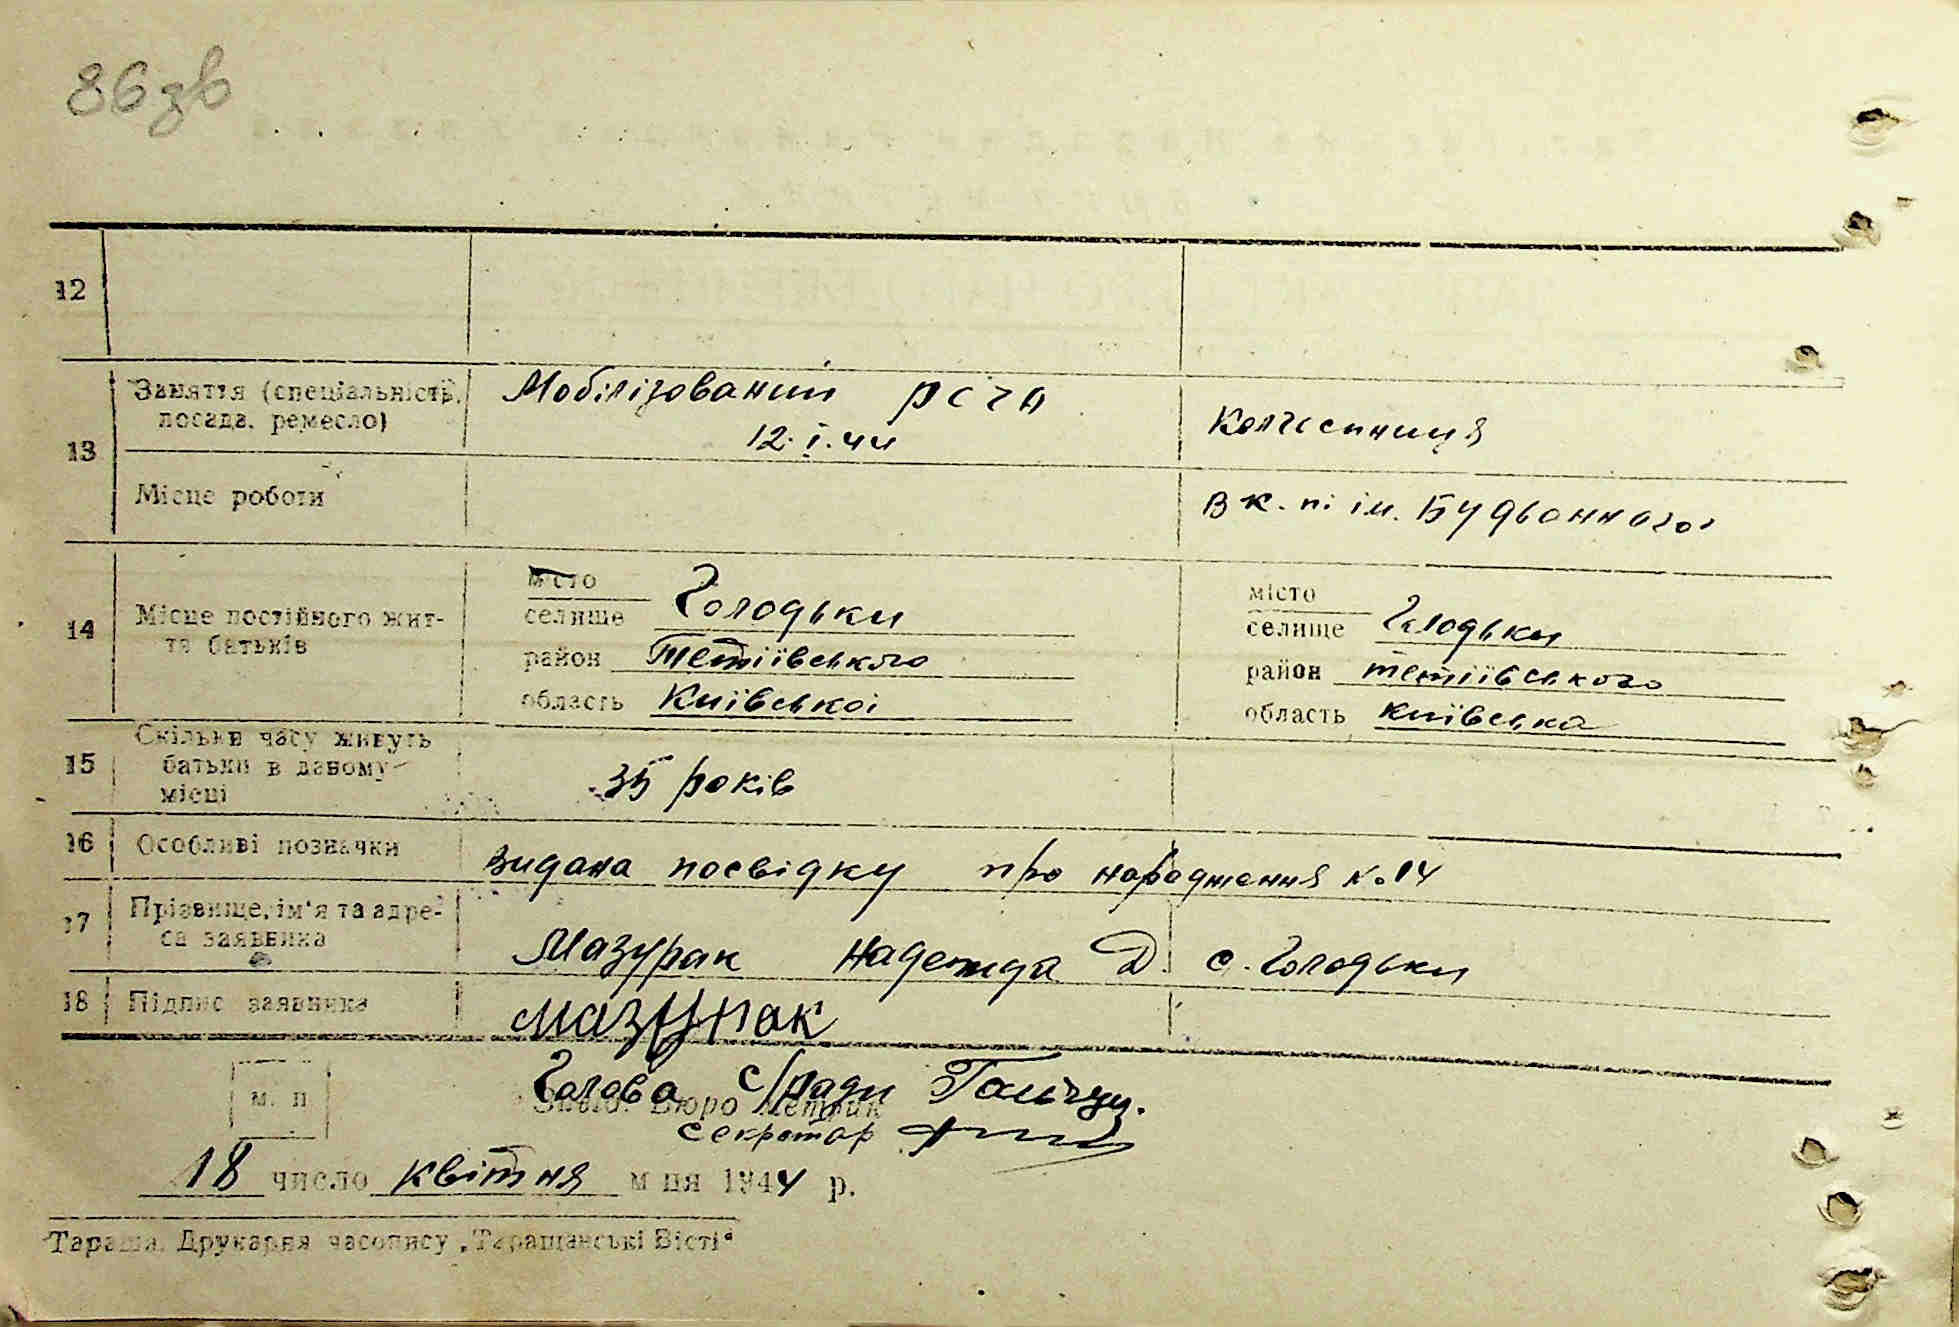 86зв
12
13
Заняття (спеціальність,
посада, ремесло)
Мобілізований РСЧА
12.I.44
Колгоспниця
Місце роботи
в к-пі ім. Будьонного
14
Місце постійного жит-
та батьків
місто
селище Голодьки
район Тетіївського
область Київської
місто
селище Голодьки
район тетіївського
область київська
15
Скільки часу живуть
батьки в даному
місці
35 років
16
Особливі позначки
видана посвідку про народження №14
17
Прізвище, ім'я та адре-
са заявника
Мазурак Надежда Д. с. Голодьки
18
Підпис заявника
Мазурак
Голова с/ради
Завід. Бюро Метрик
секретар
м. п
18 число квітня м ця 1944 р.
Тараща. Друкарня часопису „Таращанські Вісті“